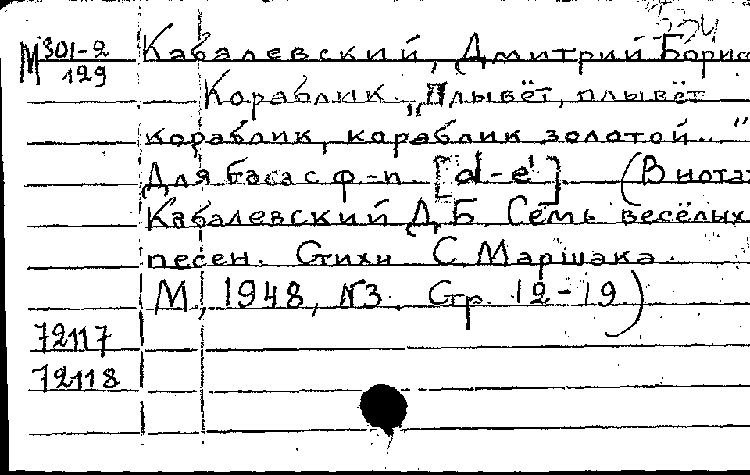 234
М 301-2
129
Кабалевский, Дмитрий Борис
Кораблик. „Плывёт, плывёт
кораблик, караблик золотой..."
Для баса с ф.-п. [d-e¹] (В нотах
Кабалевский Д.Б. Семь весёлых
песен. Стихи С. Маршака.
М., 1948, №3. Стр. 12-19)
72117
72118